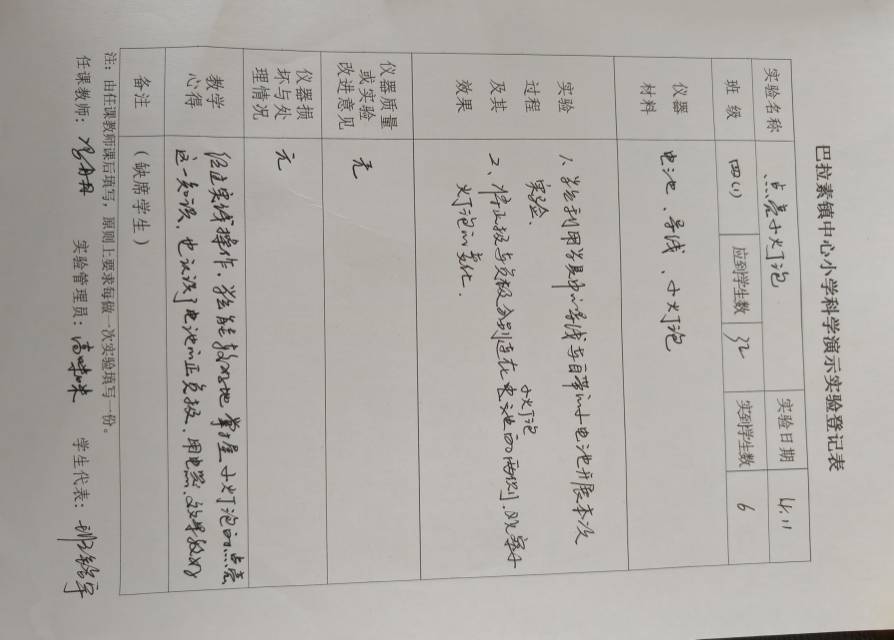 巴拉素镇中心小学科学演示实验登记表
实验名称 点亮小灯泡 实验日期 4.11
班级 四(1) 应到学生数 32 实到学生数 6
仪器材料 电池、导线、小灯泡
实验过程及其效果
1、学生利用学具中的导线与自带的小电池开展本次
实验.
2、将正极与负极分别连在小灯泡电池的两侧.观察小
灯泡的变化.
仪器质量或实验改进意见 无
仪器损坏与处理情况 无
教学心得
经过实践操作.学生能较好地掌握小灯泡的点亮
这一知识.也认识了电池的正负极.用电器.效果较好
备注 （缺席学生）
注：由任课教师课后填写，原则上要求每做一次实验填写一份。
任课教师： 实验管理员： 学生代表：